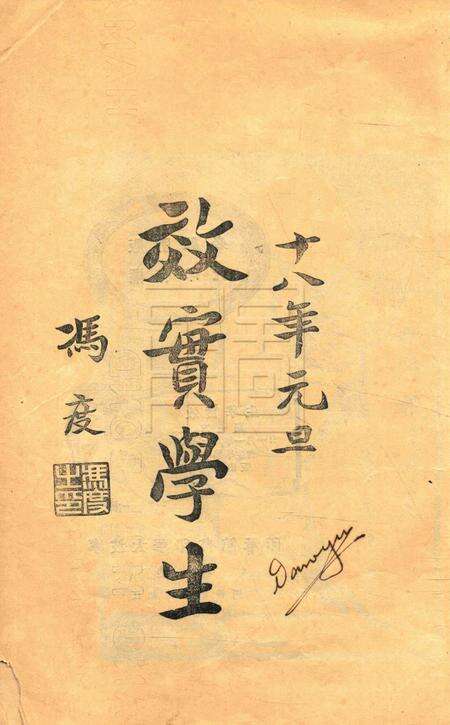 十八年元旦
效實學生
馮度
馮度之印